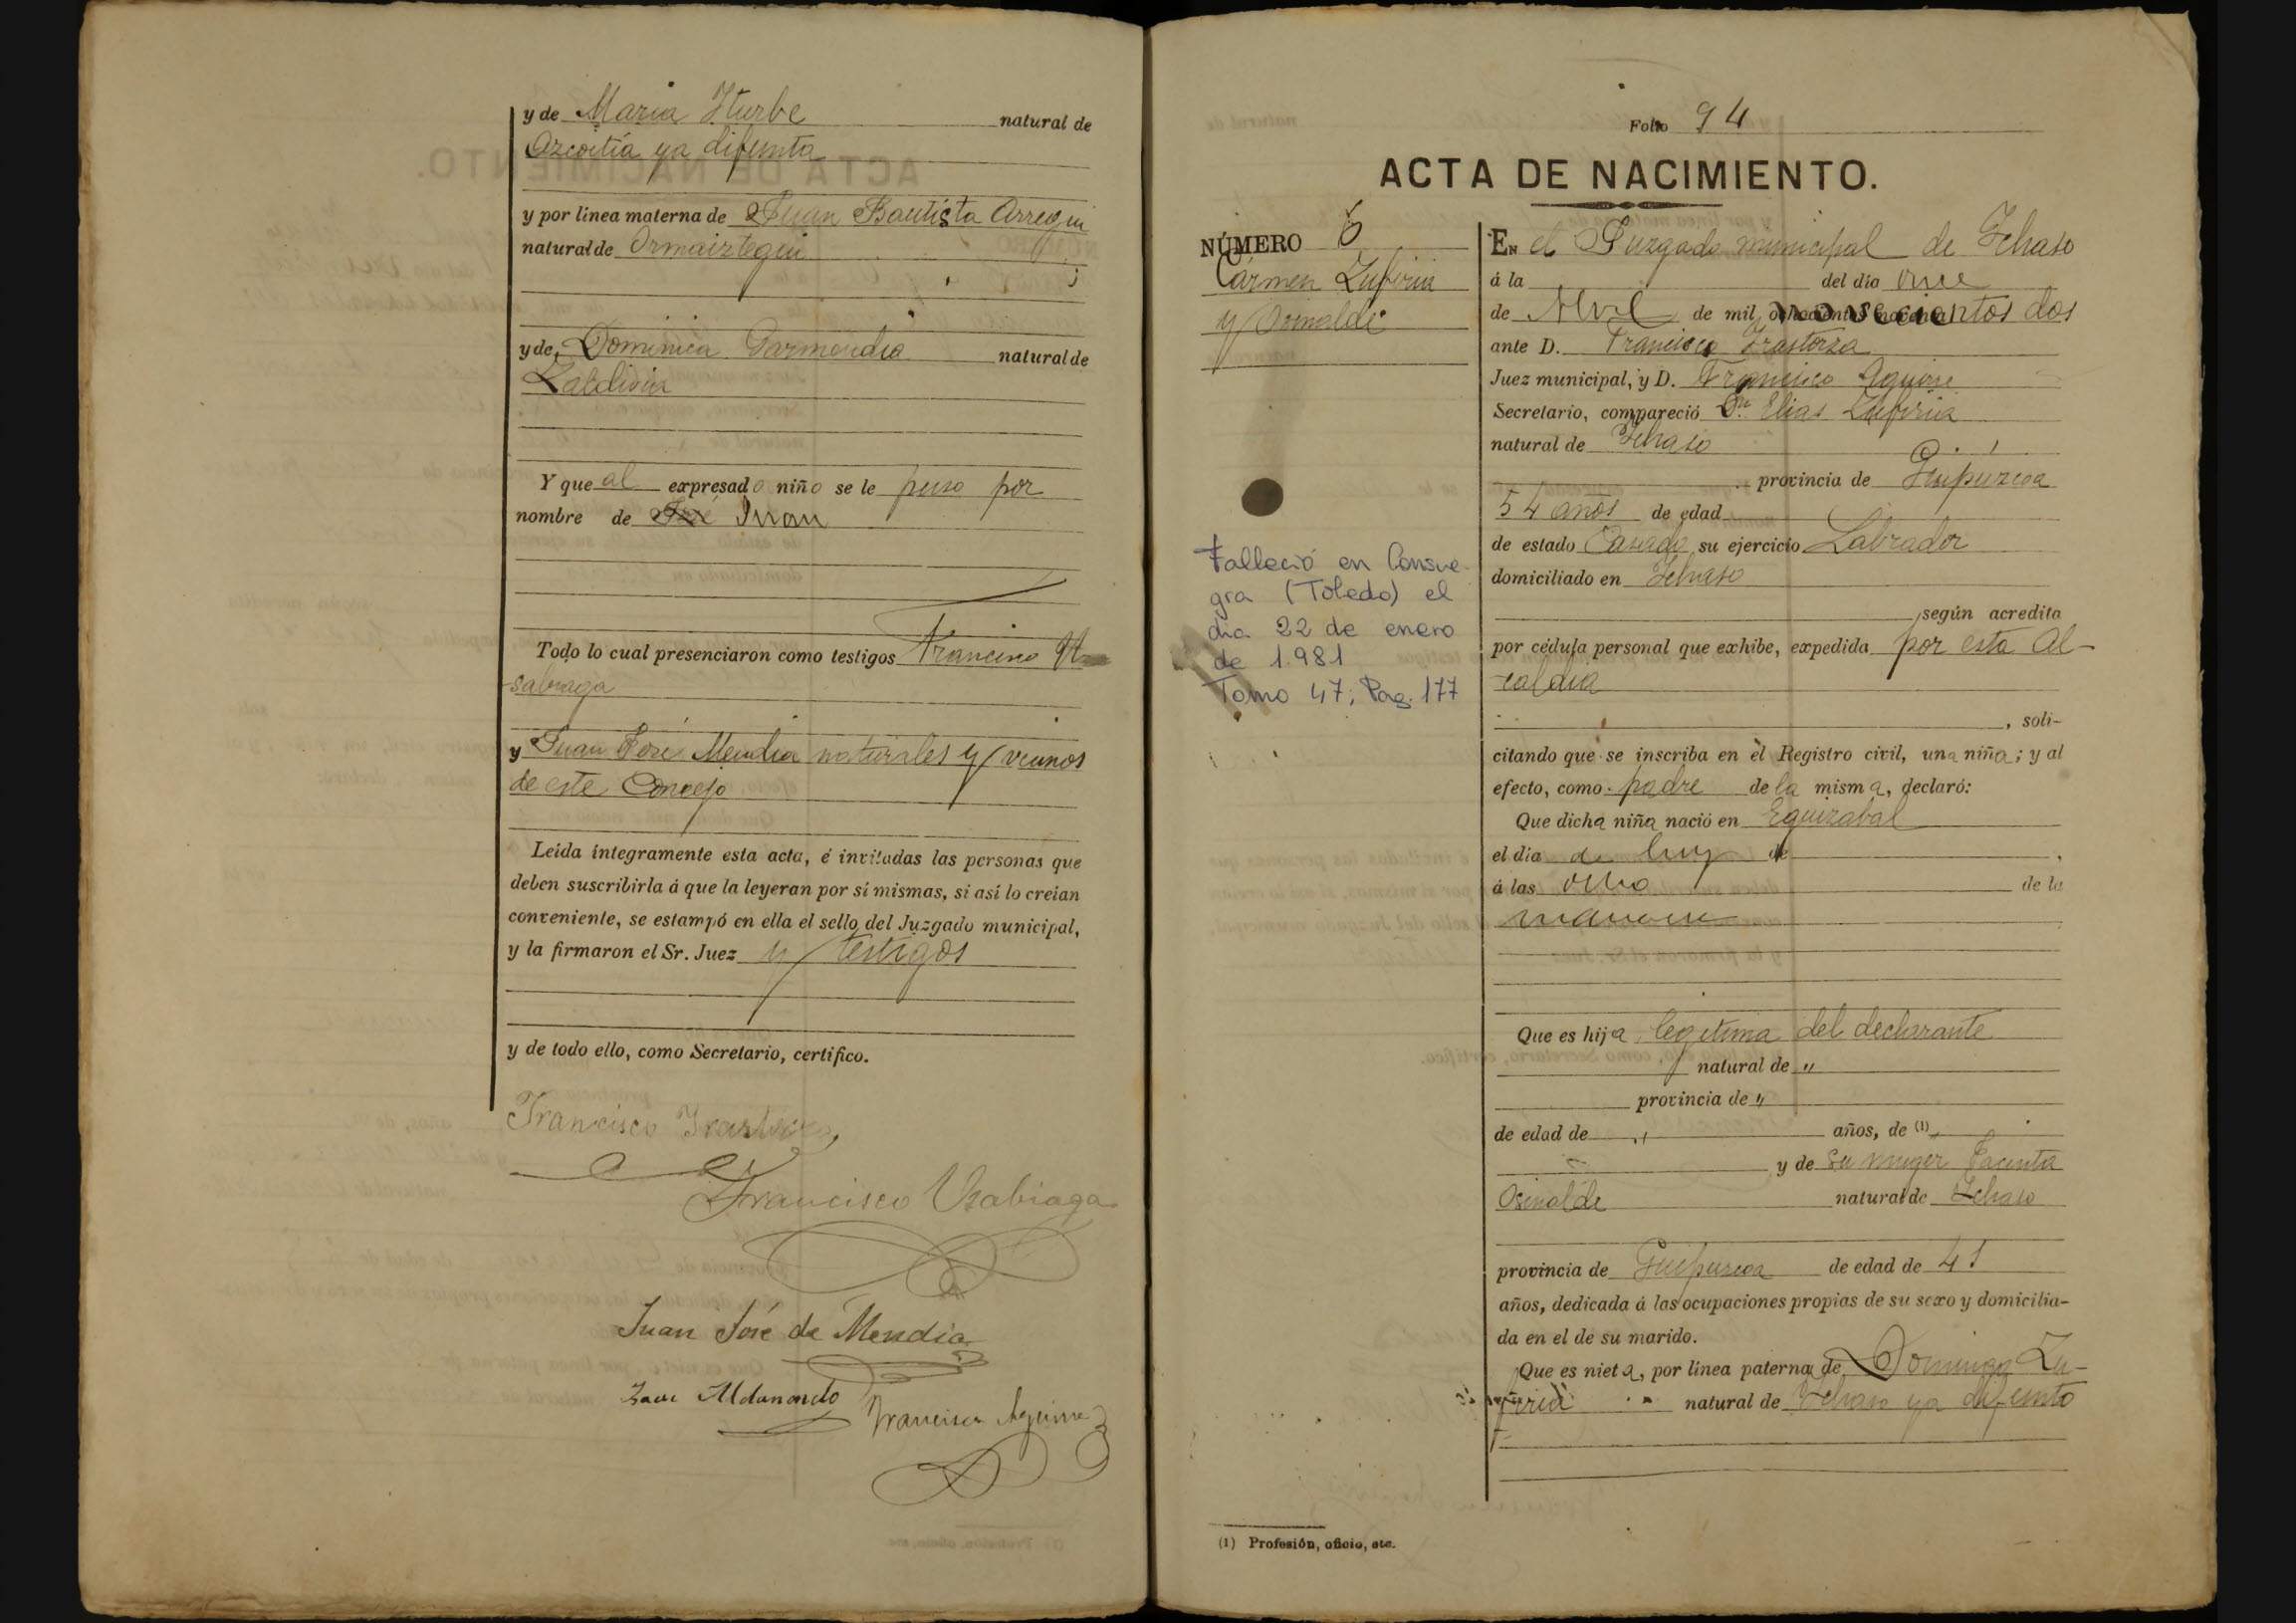 y de Maria Yturbe natural de
Azcoitia ya difunta
y por linea materna de Juan Bautista Arregui
natural de Ormaiztegui
y de Dominica Garmendia natural de
Zaldivia
Y que al expresado niño se le puso por
nombre de José Juan
Todo lo cual presenciaron como testigos Francisco
y Juan José Mendia naturales y vecinos
de este Concejo
Leida íntegramente esta acta, é invitadas las personas que
deben suscribirla á que la leyeran por sí mismas, si así lo creían
conveniente, se estampó en ella el sello del Juzgado municipal,
y la firmaron el Sr. Juez y testigos
y de todo ello, como Secretario, certifico.
Francisco Yrastorza
Francisco Usabiaga
Juan José de Mendia
Aldanondo Francisco Aguirre
Folio 94
ACTA DE NACIMIENTO.
NÚMERO 6
Cármen Zufiria
y Osinalde
Falleció en Consue-
gra (Toledo) el
dia 22 de enero
de 1.981
Tomo 47; Pag. 177
EN el Juzgado municipal de Ychaso
á la del día once
de Abril de mil novecientos dos
ante D. Francisco Yrastorza
Juez municipal, y D. Francisco Aguirre
Secretario, compareció Dn Elias Zufiria
natural de Ychaso
provincia de Guipúzcoa
54 años de edad
de estado Casado su ejercicio Labrador
domiciliado en Ychaso
, según acredita
por cédula personal que exhibe, expedida por esta Al-
caldia
, soli-
citando que se inscriba en el Registro civil, una niña; y al
efecto, como padre de la misma, declaró:
Que dicha niña nació en Eguizabal
el día de hoy de
á las ocho de la
mañana
Que es hija legitima del declarante
natural de "
provincia de "
de edad de " años, de (1)
y de su muger Jacinta
Osinalde natural de Ychaso
provincia de Guipuzcoa de edad de 41
años, dedicada á las ocupaciones propias de su sexo y domicilia-
da en el de su marido.
Que es nieta, por línea paterna de Domingo Zu-
firia natural de Ychaso ya difunto
(1) Profesión, oficio, etc.